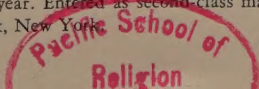 year. Entered as second-class ma
, New York.
Pacific School of
Religion